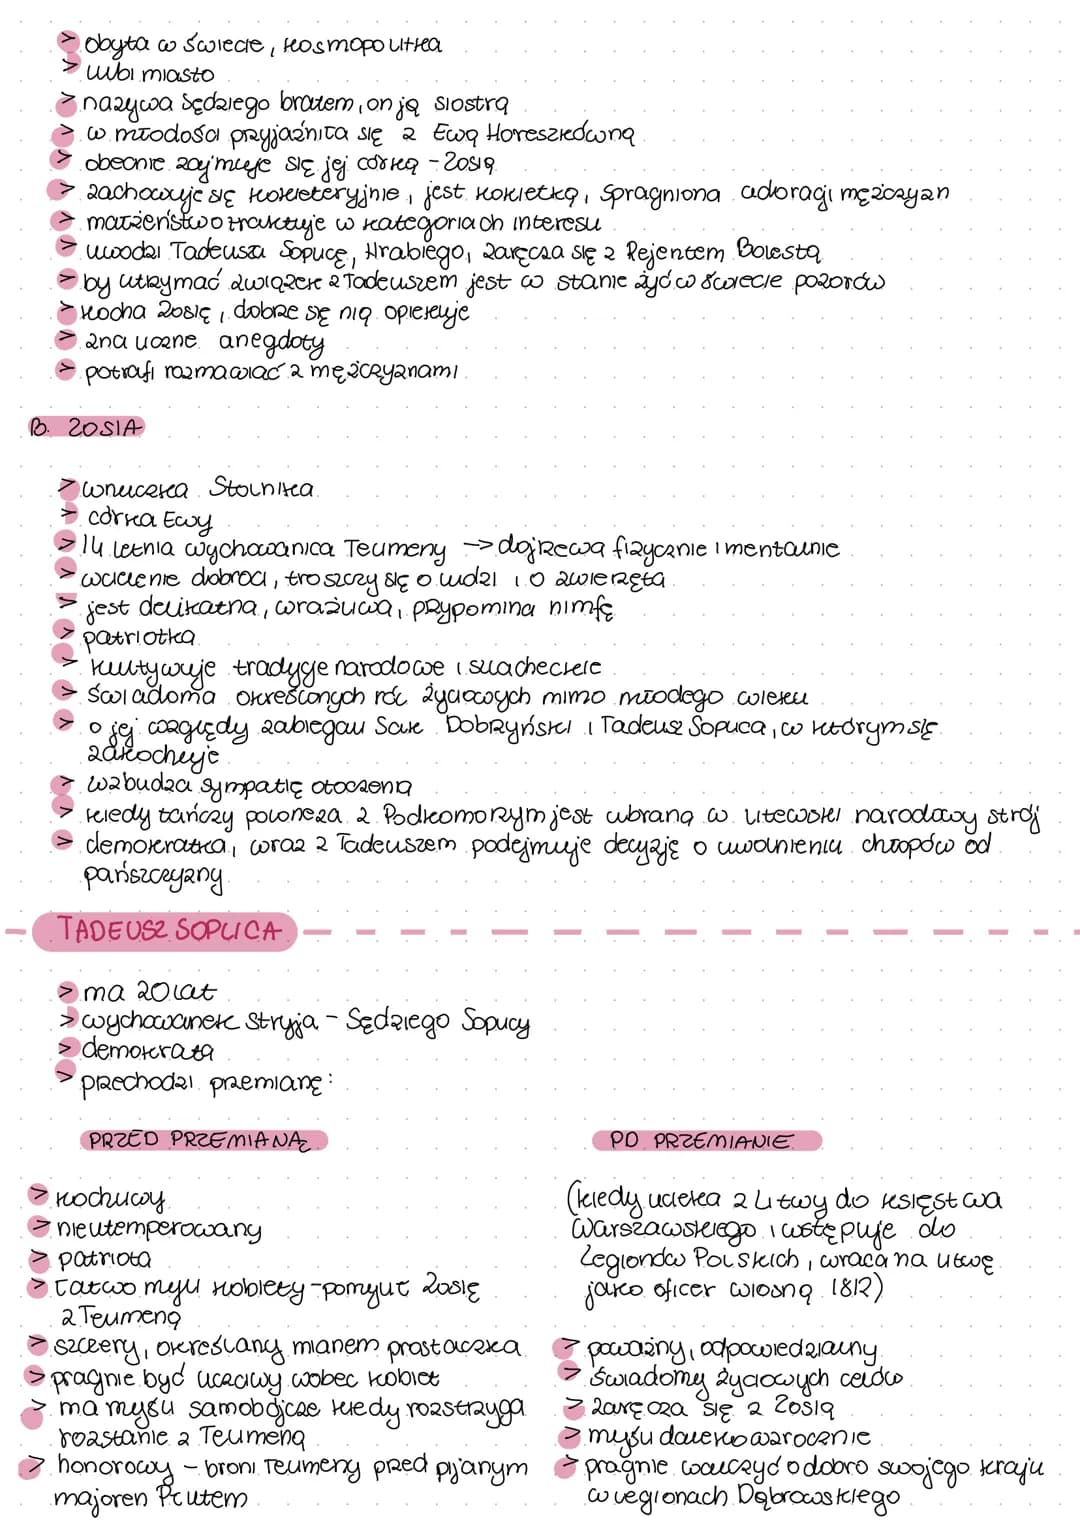 > obyta w świecie, kosmopolitka
> lubi miasto
> nazywa Sędziego bratem, on ją siostrą
> w młodości przyjaźniła się z Ewą Horeszkówną
> obecnie zajmuje się jej córką - Zosią
> zachowuje się kokieteryjnie, jest kokietką, spragniona adoracji mężczyzn
> małżeństwo traktuje w kategoriach interesu
> uwodzi Tadeusza Soplicę, Hrabiego, zaręcza się z Rejentem Bolestą
> by utrzymać związek z Tadeuszem jest w stanie żyć w świecie pozorów
> kocha Zosię, dobrze się nią opiekuje
> zna liczne anegdoty
> potrafi rozmawiać z mężczyznami
B. ZOSIA
> wnuczka Stolnika
> córka Ewy
> 14 letnia wychowanica Telimeny → dojrzewa fizycznie i mentalnie
> wcielenie dobroci, troszczy się o ludzi i o zwierzęta
> jest delikatna, wrażliwa, przypomina nimfę
> patriotka
> kultywuje tradycje narodowe i szlacheckie
> świadoma określonych ról życiowych mimo młodego wieku
> o jej względy zabiegali Sak Dobrzyński i Tadeusz Soplica, w którym się
zakochuje
> wzbudza sympatię otoczenia
> kiedy tańczy poloneza z Podkomorzym jest ubraną w litewski narodowy strój
> demokratka, wraz z Tadeuszem podejmuje decyzję o uwolnieniu chłopów od
pańszczyzny
TADEUSZ SOPLICA
> ma 20 lat
> wychowanek stryja - Sędziego Soplicy
> demokrata
> przechodzi przemianę:
PRZED PRZEMIANĄ
> kochliwy
> nieutemperowany
> patriota
> łatwo myli kobiety - pomylił Zosię
z Telimeną
> szczery, określany mianem prostaczka
> pragnie być uczciwy wobec kobiet
> ma myśli samobójcze kiedy rozstrzyga
rozstanie z Telimeną
> honorowy - broni Telimeny przed pijanym
majorem Płutem
PO PRZEMIANIE
(kiedy ucieka z Litwy do Księstwa
Warszawskiego i wstępuje do
Legionów Polskich, wraca na Litwę
jako oficer wiosną 1812)
> poważny, odpowiedzialny
> świadomy życiowych celów
> zaręcza się z Zosią
> myśli dalekowzrocznie
> pragnie walczyć o dobro swojego kraju
w legionach Dąbrowskiego